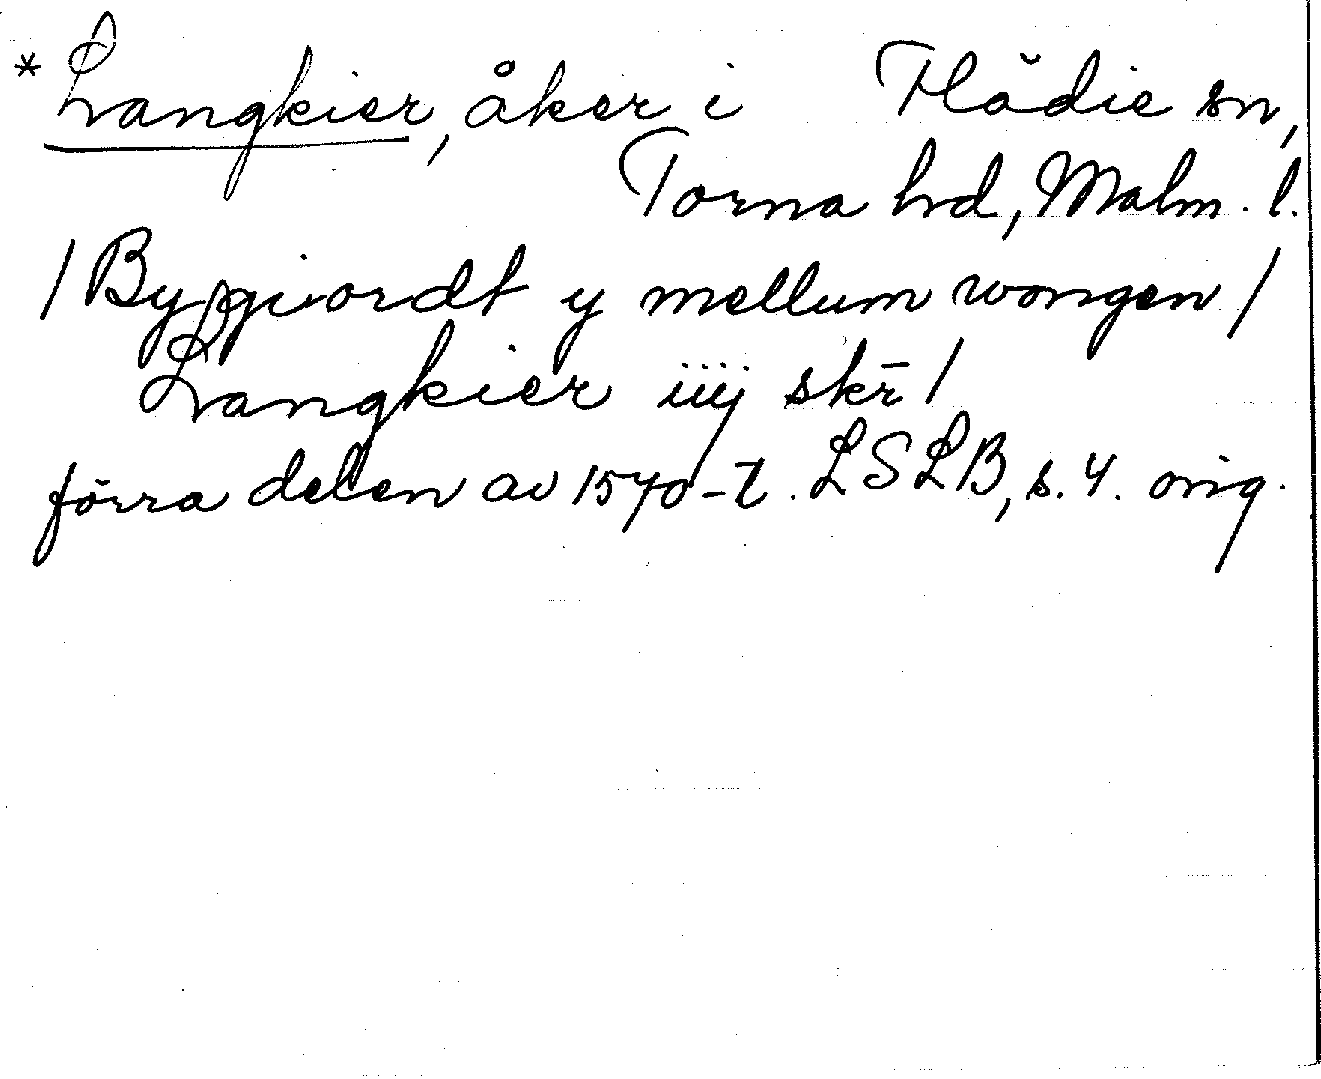 * Langkier, åker i Flädie sn,
Torna hd, Malm. l.
/ Byggiordt y mellum wongen /
Langkier iiij skr̄ /
förra delen av 1570-t. LSLB, s. 4. orig.